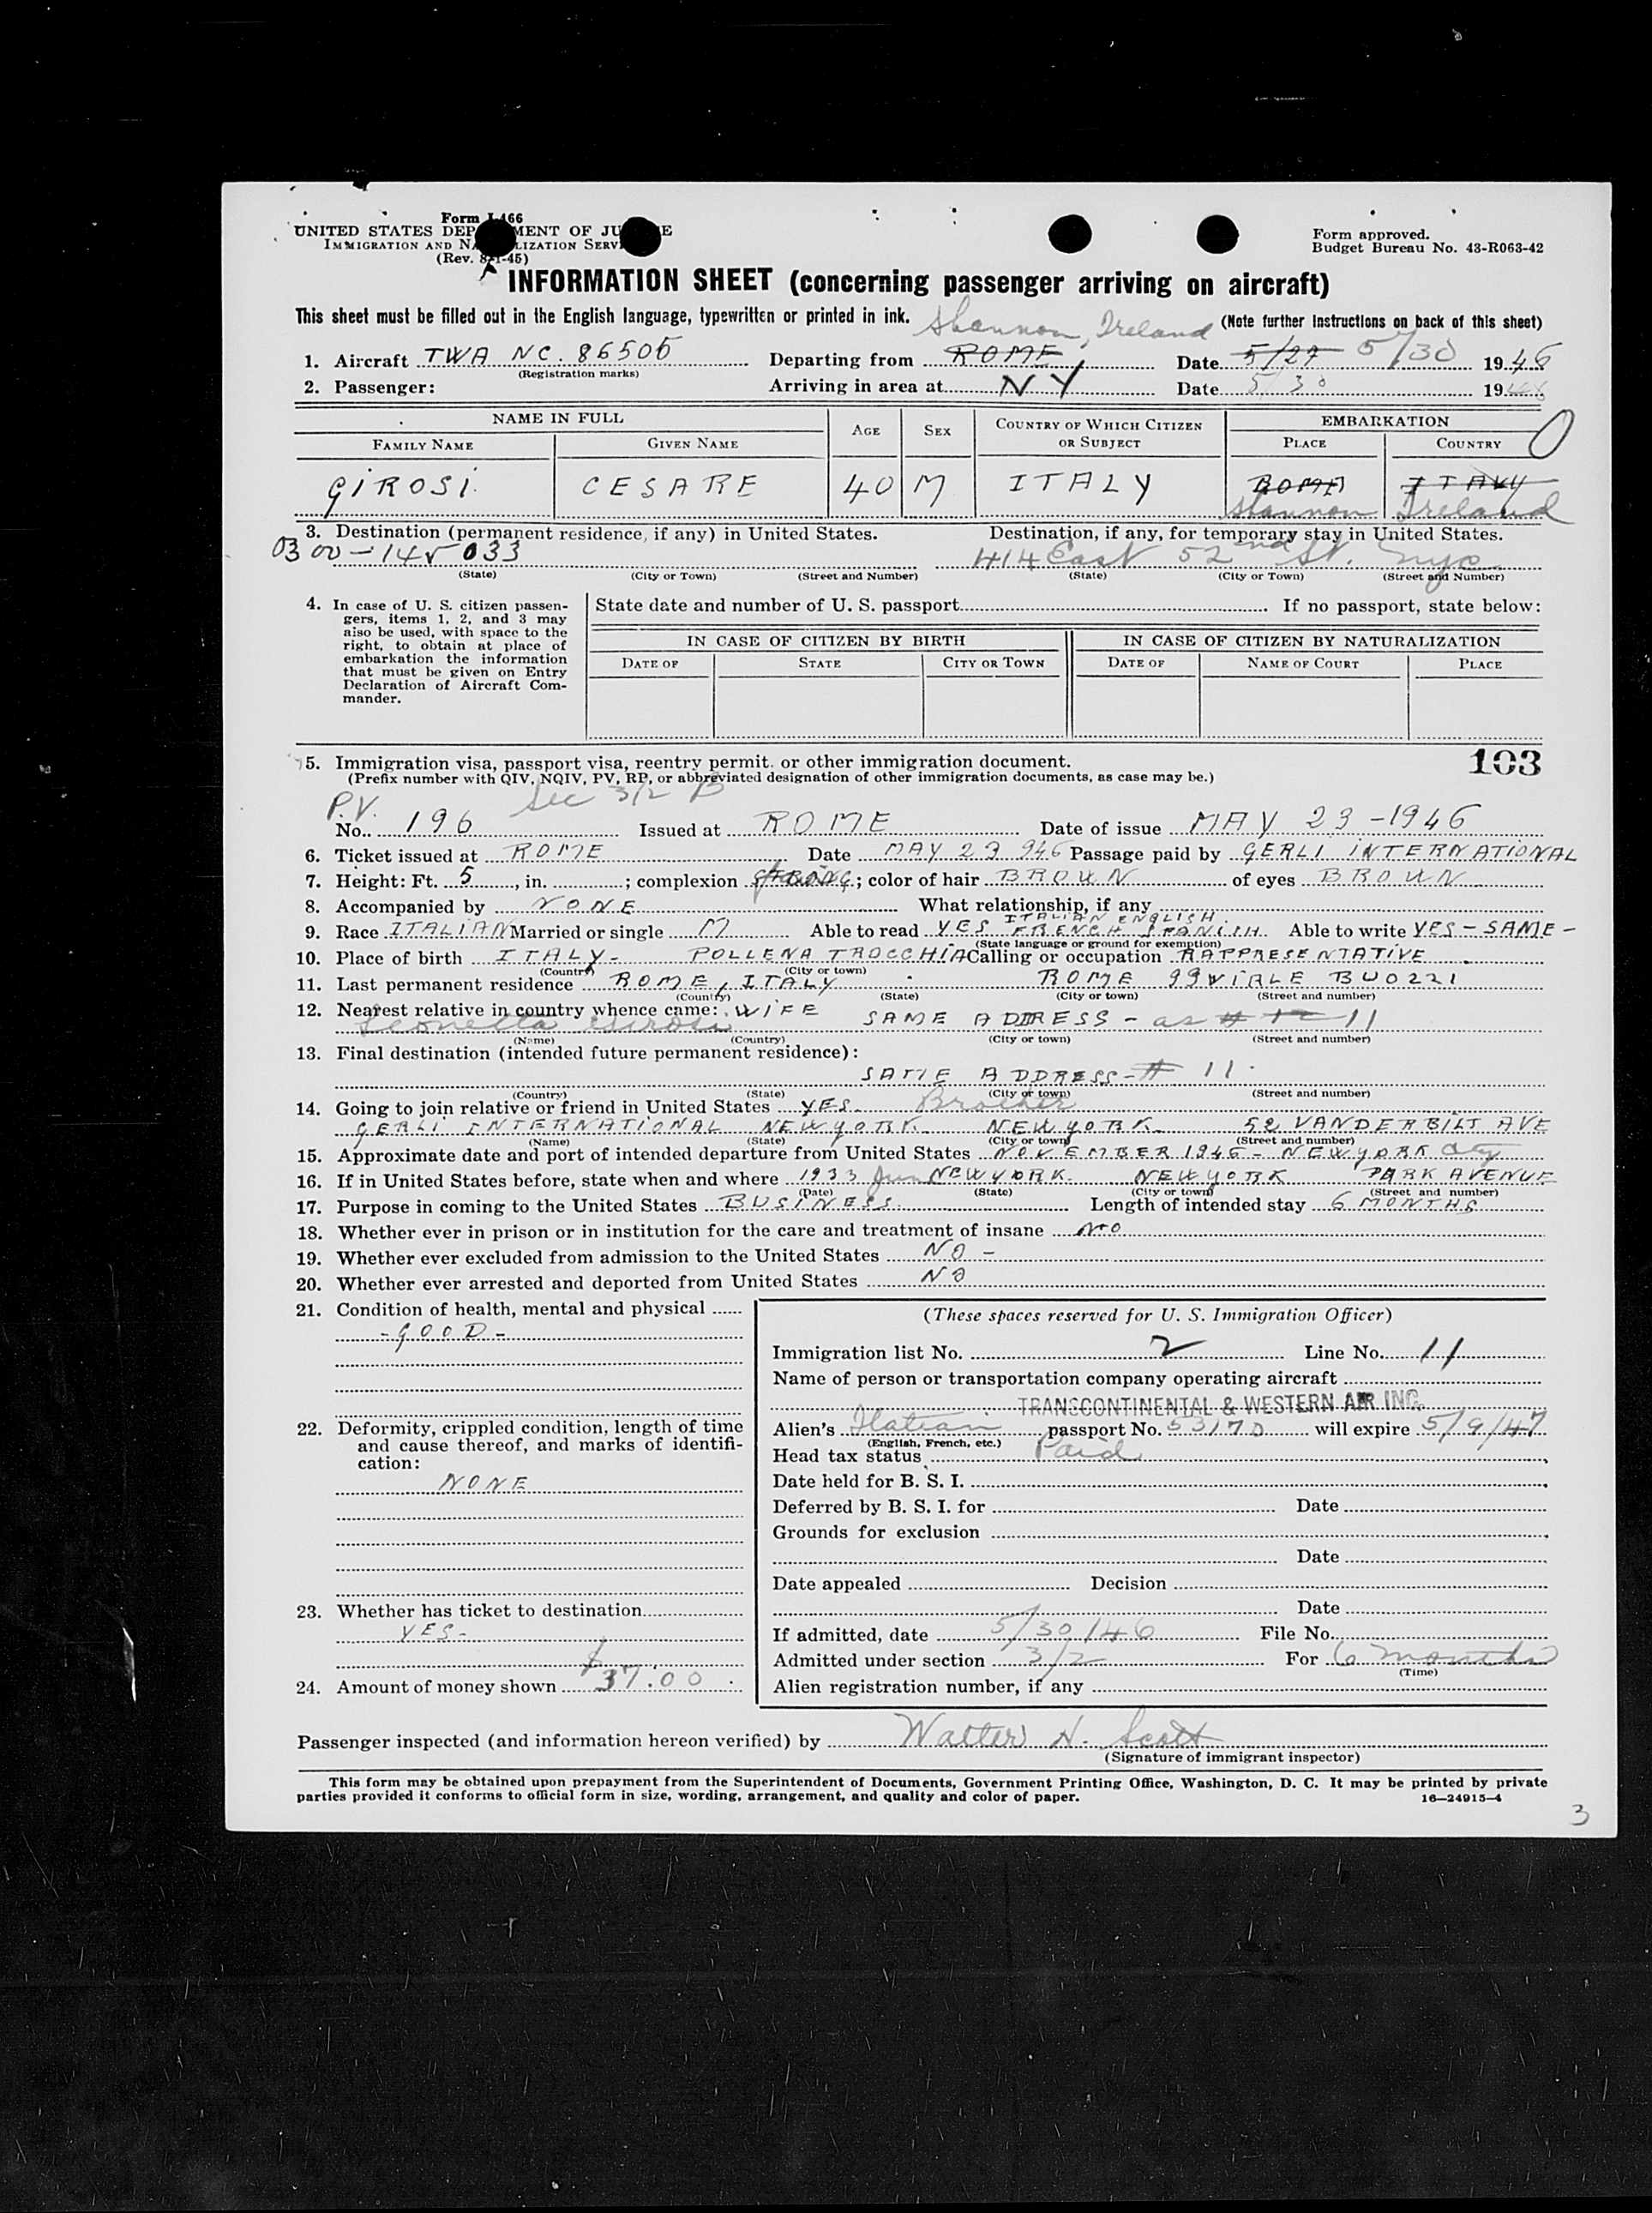 Form I-466
UNITED STATES DEP MENT OF JU E
IMMIGRATION AND NA LIZATION SERV
(Rev. 8-1-45)
Form approved.
Budget Bureau No. 43-R063-42
INFORMATION SHEET (concerning passenger arriving on aircraft)
This sheet must be filled out in the English language, typewritten or printed in ink. Shannon, Ireland (Note further instructions on back of this sheet)
1. Aircraft TWA NC. 86505 Departing from ROME Date 5/27 5/30 1946
(Registration marks)
2. Passenger: Arriving in area at NY Date 5/30 1946
NAME IN FULL AGE SEX COUNTRY OF WHICH CITIZEN OR SUBJECT EMBARKATION
FAMILY NAME GIVEN NAME PLACE COUNTRY
GIROSI. CESARE 40 M ITALY ROME ITALY
Shannon Ireland
3. Destination (permanent residence, if any) in United States. Destination, if any, for temporary stay in United States.
0300-14 033 414 East 52nd St. NYC
(State) (City or Town) (Street and Number) (State) (City or Town) (Street and Number)
4. In case of U. S. citizen passengers, items 1, 2, and 3 may also be used, with space to the right, to obtain at place of embarkation the information that must be given on Entry Declaration of Aircraft Commander.
State date and number of U. S. passport If no passport, state below:
IN CASE OF CITIZEN BY BIRTH IN CASE OF CITIZEN BY NATURALIZATION
DATE OF STATE CITY OR TOWN DATE OF NAME OF COURT PLACE
103
5. Immigration visa, passport visa, reentry permit. or other immigration document.
(Prefix number with QIV, NQIV, PV, RP, or abbreviated designation of other immigration documents, as case may be.)
P.V. Sec 3/2 B
No. 196 Issued at ROME Date of issue MAY 23-1946
6. Ticket issued at ROME Date MAY 23 946 Passage paid by GERLI INTERNATIONAL
7. Height: Ft. 5, in. ; complexion STRONG; color of hair BROWN of eyes BROWN
8. Accompanied by NONE What relationship, if any
9. Race ITALIAN Married or single M Able to read YES ITALIAN ENGLISH FRENCH SPANISH Able to write YES-SAME-
(State language or ground for exemption)
10. Place of birth ITALY- POLLENA TROCCHIA Calling or occupation RAPPRESENTATIVE
(Country) (City or town)
11. Last permanent residence ROME, ITALY ROME 99 VIALE BUOZZI
(Country) (State) (City or town) (Street and number)
12. Nearest relative in country whence came: WIFE
Leonella Girosi SAME ADDRESS - as # 12 11
(Name) (Country) (City or town) (Street and number)
13. Final destination (intended future permanent residence):
SAME ADDRESS-# 11.
(Country) (State) (City or town) (Street and number)
14. Going to join relative or friend in United States YES. Brother
GERLI INTERNATIONAL NEW YORK NEW YORK 52 VANDERBILT AVE
(Name) (State) (City or town) (Street and number)
15. Approximate date and port of intended departure from United States NOVEMBER 1946- NEW YORK City
16. If in United States before, state when and where 1933 June NEW YORK NEW YORK PARK AVENUE
(Date) (State) (City or town) (Street and number)
17. Purpose in coming to the United States BUSINESS. Length of intended stay 6 MONTHS
18. Whether ever in prison or in institution for the care and treatment of insane NO
19. Whether ever excluded from admission to the United States NO -
20. Whether ever arrested and deported from United States NO
21. Condition of health, mental and physical
-GOOD-
22. Deformity, crippled condition, length of time and cause thereof, and marks of identification:
NONE
23. Whether has ticket to destination
YES-
24. Amount of money shown $37.00
(These spaces reserved for U. S. Immigration Officer)
Immigration list No. 2 Line No. 11
Name of person or transportation company operating aircraft
TRANSCONTINENTAL & WESTERN AIR INC.
Alien's Italian passport No. 53170 will expire 5/9/47
(English, French, etc.)
Head tax status Paid
Date held for B. S. I.
Deferred by B. S. I. for Date
Grounds for exclusion
Date
Date appealed Decision
Date
If admitted, date 5/30/46 File No.
Admitted under section 3/2 For 6 months
(Time)
Alien registration number, if any
Passenger inspected (and information hereon verified) by Walter H. Scott
(Signature of immigrant inspector)
This form may be obtained upon prepayment from the Superintendent of Documents, Government Printing Office, Washington, D. C. It may be printed by private
parties provided it conforms to official form in size, wording, arrangement, and quality and color of paper. 16—24915-4
3